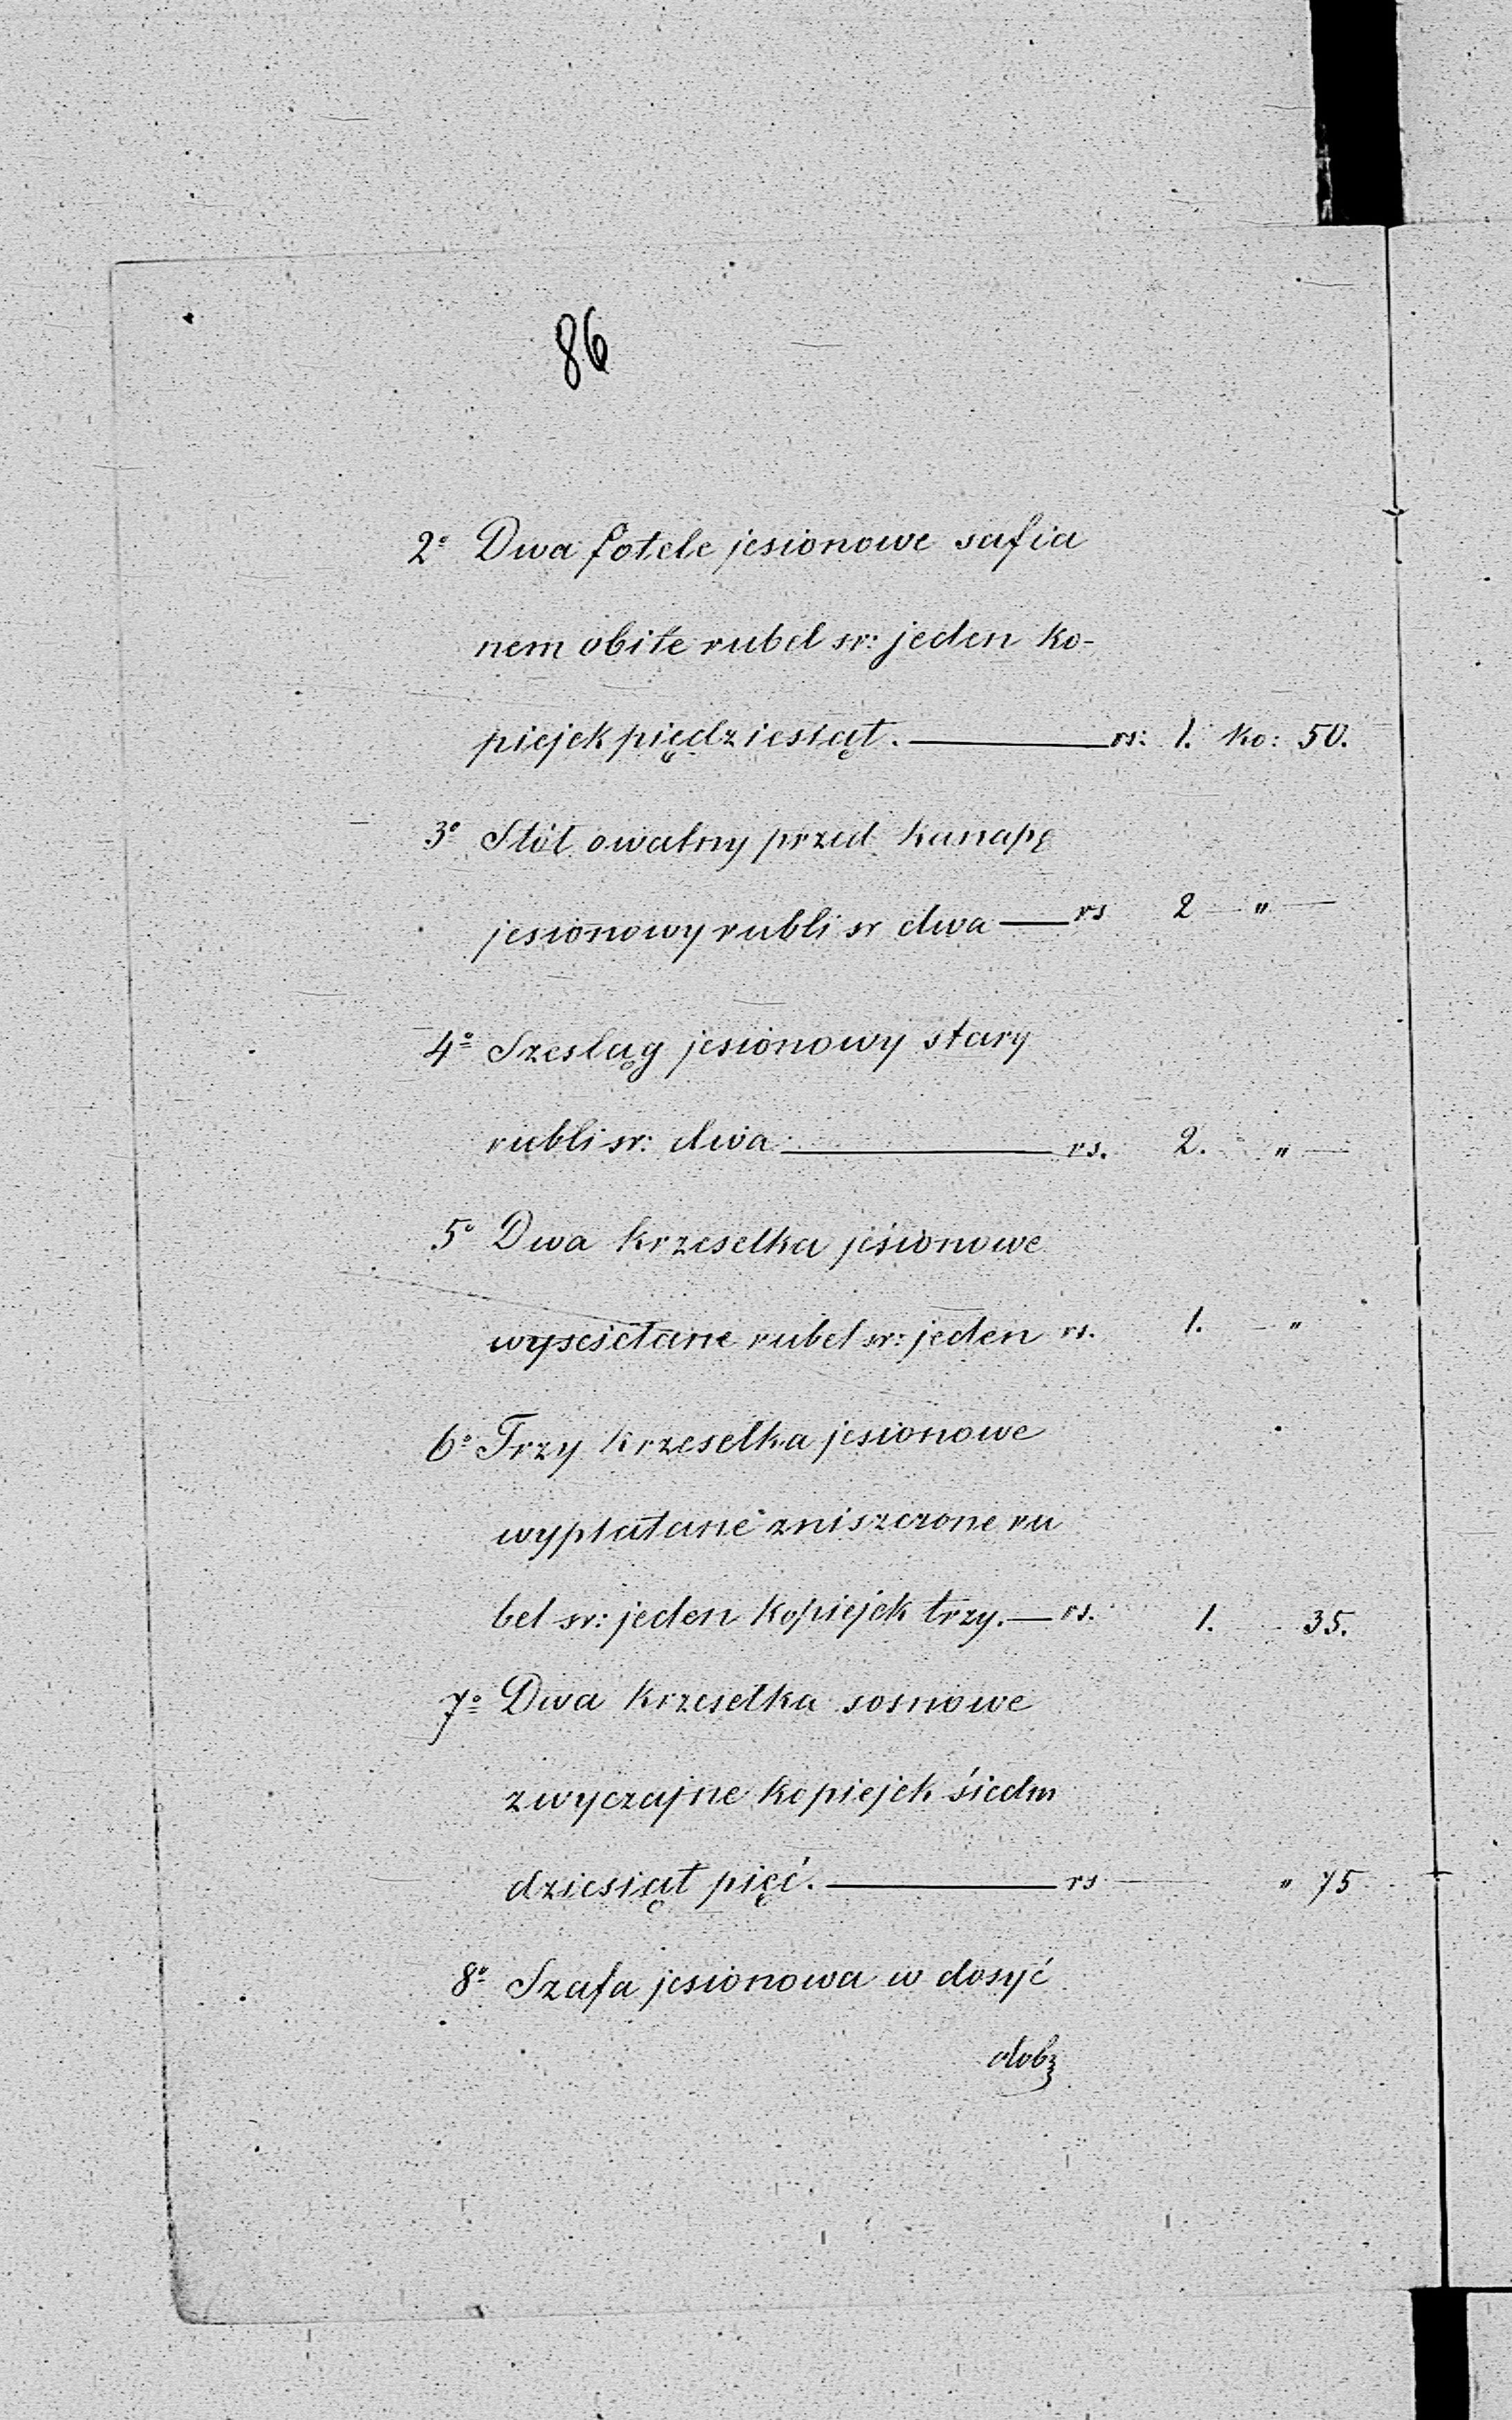 86
2º Dwa fotele jesionowe safia
nem obite rubel sr: jeden ko-
piejek piędziesiąt. rs: 1. ko: 50.
3º Stół owalny przed kanapę
jesionowy rubli sr dwa rs 2 "
4º Szesląg jesionowy stary
rubli sr: dwa rs. 2. "
5º Dwa krzesełka jesionowe
wyścićłane rubel sr: jeden rs. 1. "
6º Trzy krzesełka jesionowe
wyplatane zniszczone ru
bel sr: jeden kopiejek trzy. rs. 1. 35.
7º Dwa krzesełka sosnowe
zwyczajne kopiejek śiedm
dziesiąt pięć. rs " 75
8º Szafa jesionowa w dosyć
dobr